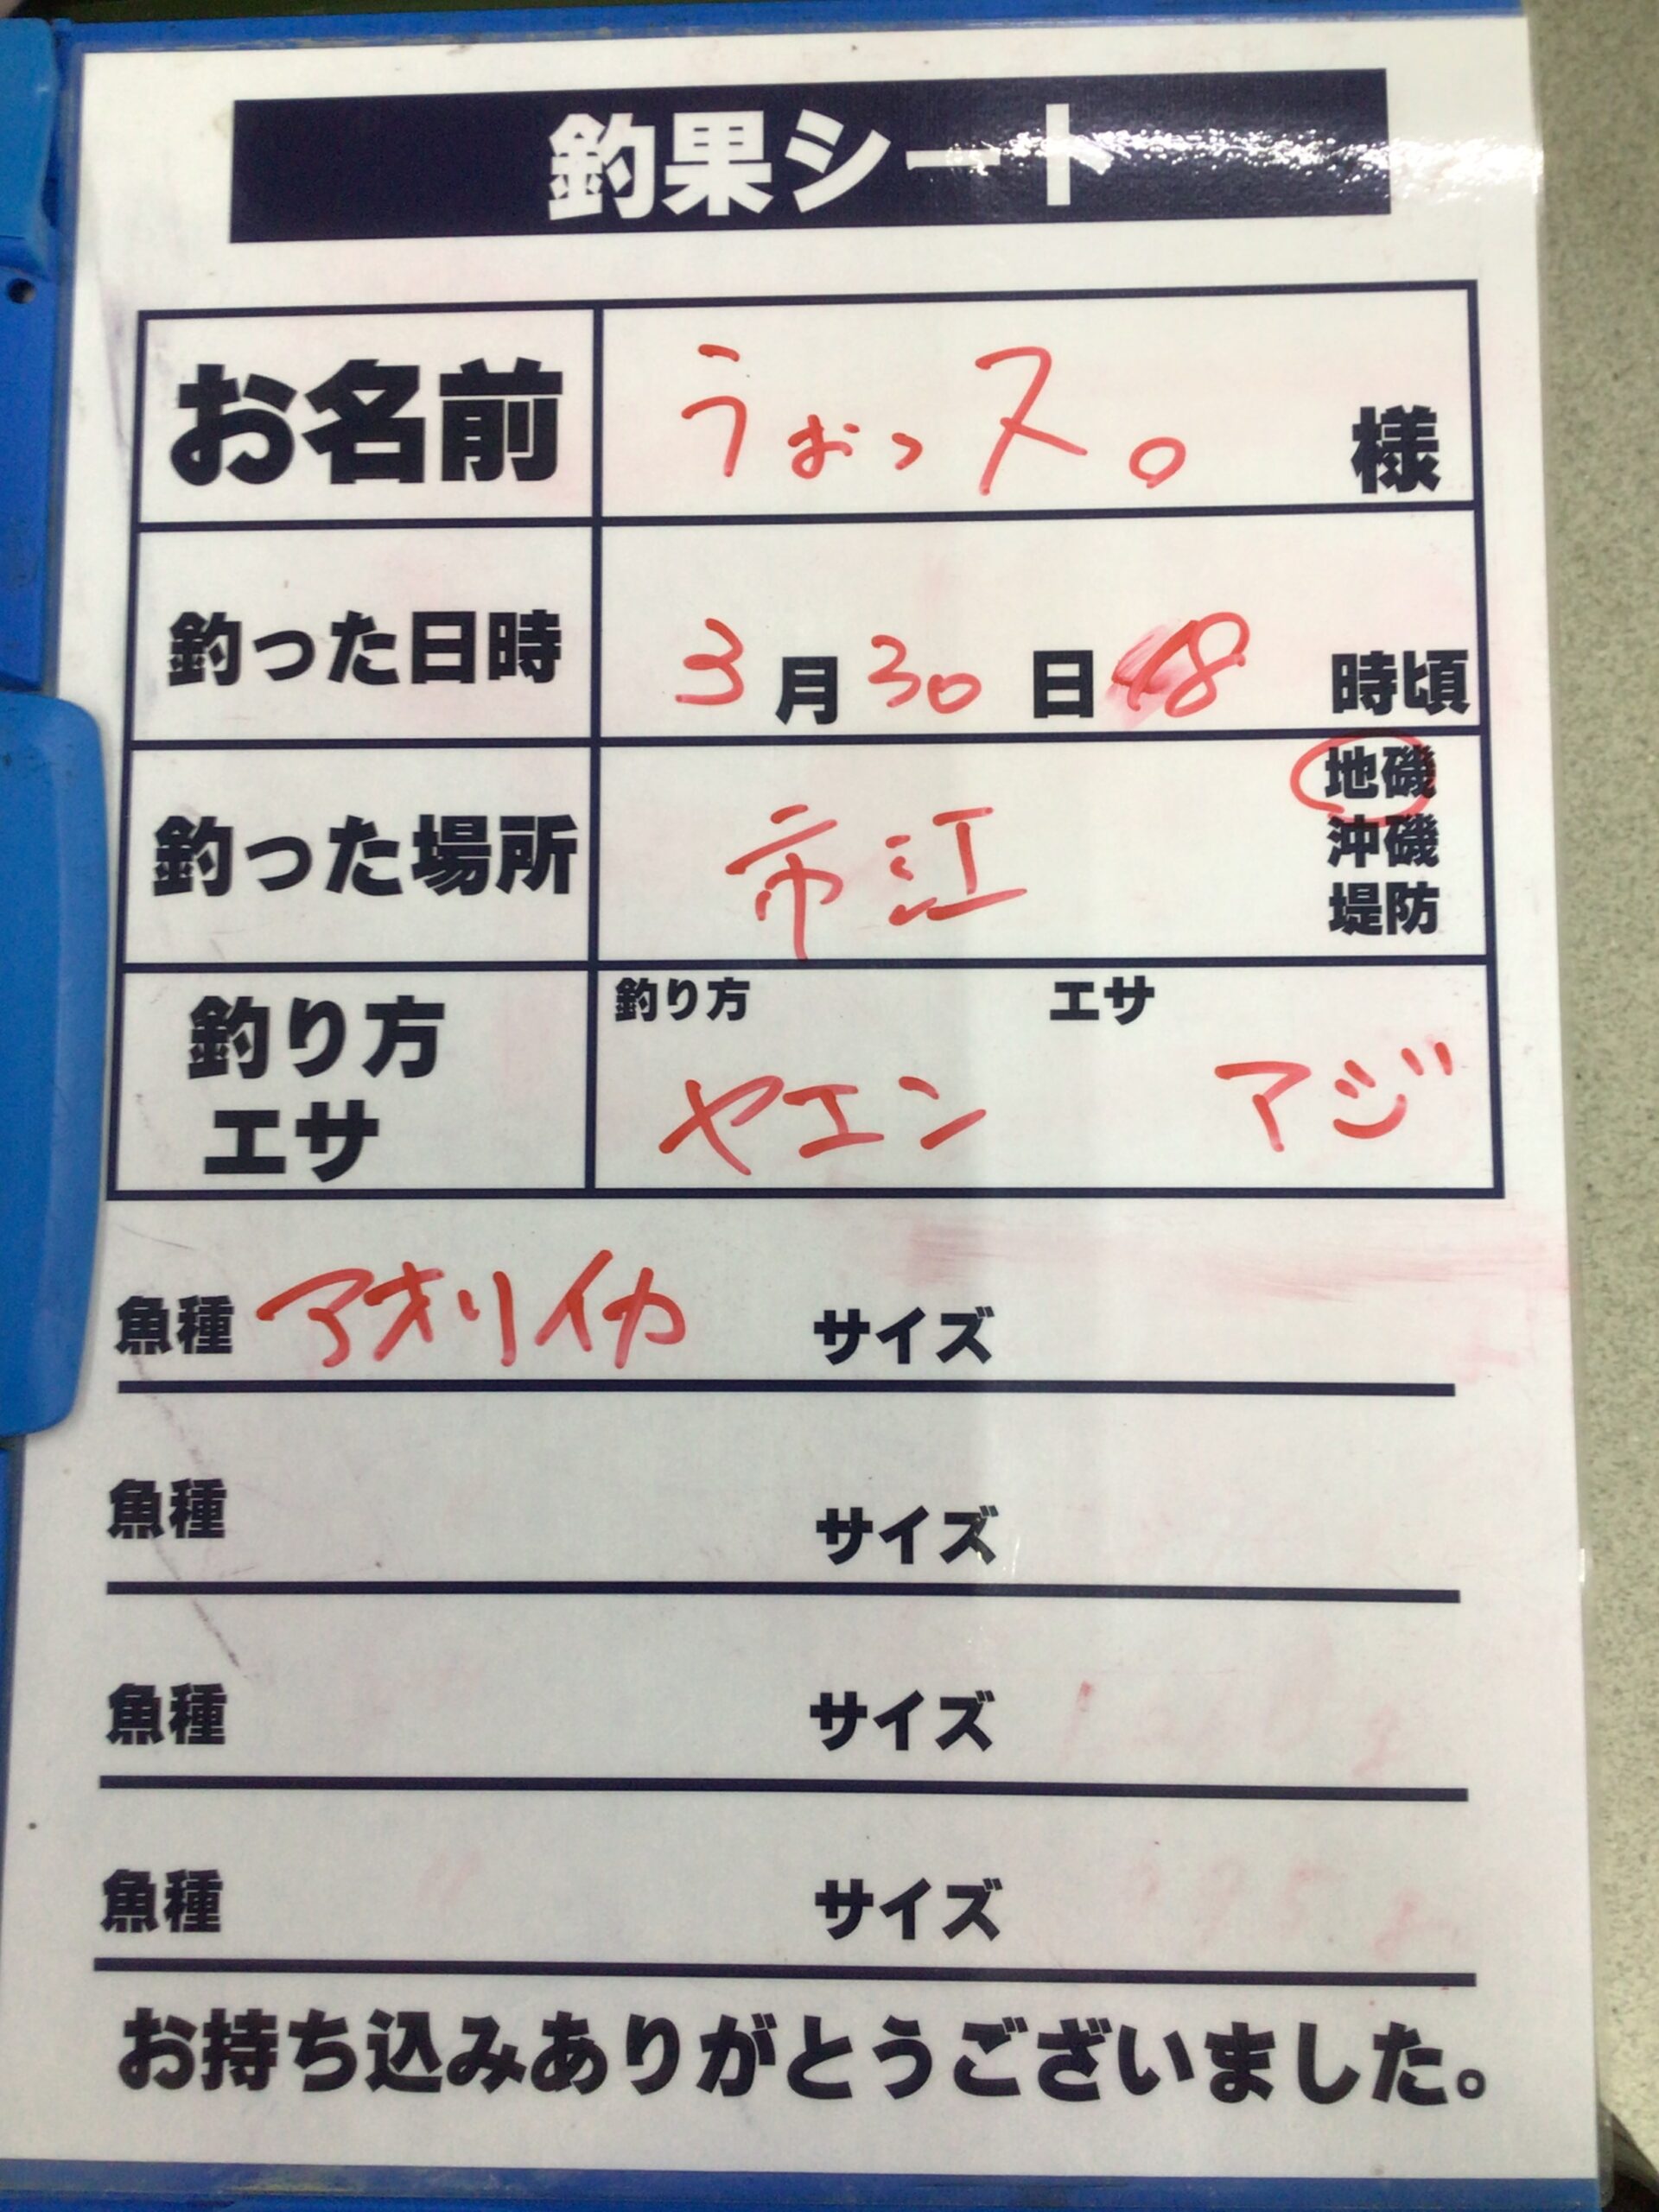 釣果シート
お名前 うぉっス。 様
釣った日時 3月30日 18 時頃
釣った場所 市江 地磯
沖磯
堤防
釣り方 エサ
釣り方 ヤエン アジ
エサ
魚種 アオリイカ サイズ
魚種 サイズ
魚種 サイズ
魚種 サイズ
お持ち込みありがとうございました。